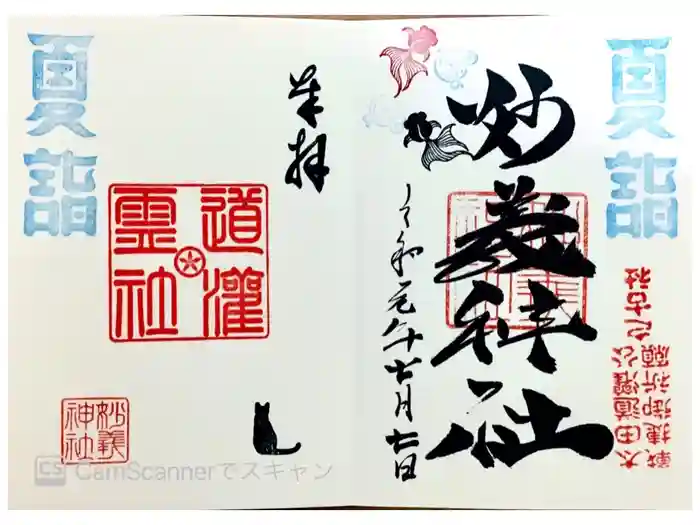 夏詣
妙義神社
令和元年七月七日
太田道灌公之古社
戦捷御祈願
夏詣
奉拝
道灌
霊社
妙義
神社
CS CamScannerでスキャン